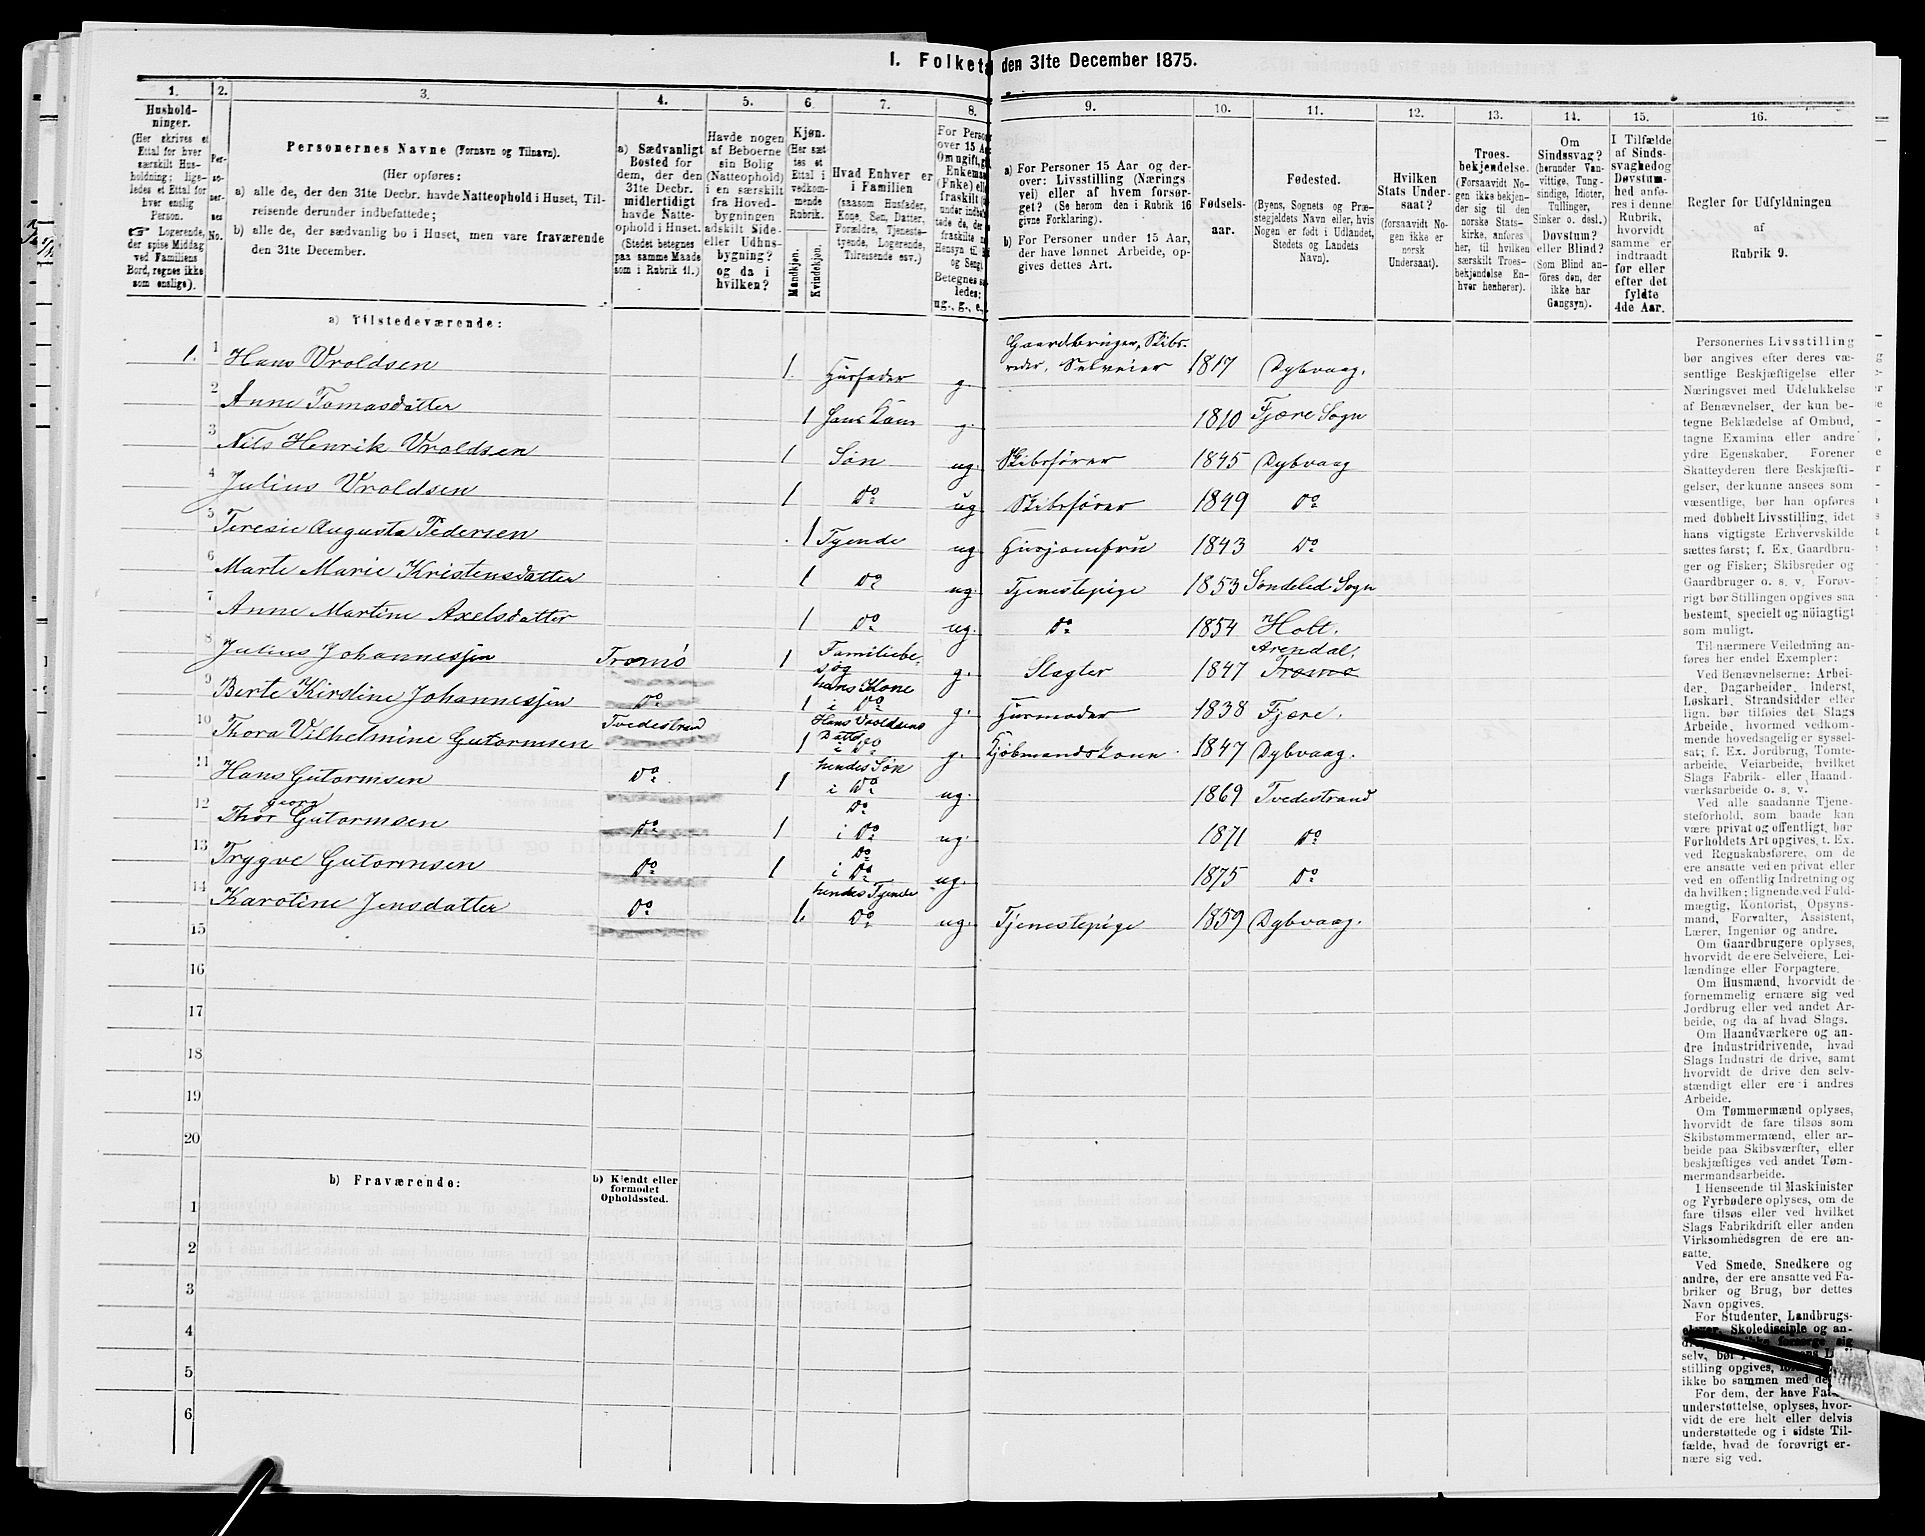 1. Folketæ den 31te December 1875.
1. 2. 3. 4. 5. 6. 7. 8. 9. 10. 11. 12. 13. 14. 15. 16.
Hushold-
ninger.
(Her skrives et
Ettal for hver
særskilt Hus-
holdning; lige-
ledes et Ettal for
hver enslig
Person.
☞ Logerende,
der spise Middag
ved Familiens
Bord, regnes ikke
som enslige).
Per-
so-
ner-
nes
No.
Personernes Navne (Fornavn og Tilnavn).
(Her opføres:
a) alle de, der den 31te Decbr. havde Natteophold i Huset, Til-
reisende derunder indbefattede;
b) alle de, der sædvanlig bo i Huset, men vare fraværende
den 31te December.
a) Sædvanligt
Bosted for
dem, der den
31te Decbr.
midlertidigt
havde Natte-
ophold i Huset.
(Stedet betegnes
paa samme Maade
som i Rubrik 11.)
Havde nogen
af Beboerne
sin Bolig
(Natteophold)
i en særskilt
fra Hoved-
bygningen
adskilt Side-
eller Udhus-
bygning?
og da i
hvilken?
Kjøn.
(Her sæt-
tes et
Ettal i
vedkom-
mende
Rubrik.
Mandkjøn.
Kvindekjøn.
Hvad Enhver er
i Familien
(saasom Husfader,
Kone, Søn, Datter,
Forældre, Tjeneste-
tyende, Logerende,
Tilreisende osv.)
For Person
over 15 Aa
Om ugift, gift,
Enkema
(Enke) elle
fraskilt (
under indbe
tede de, der
fraskilte
Hensyn til B
og Seng).
Betegnes sa-
ledes:
ug., g., e.,
a) For Personer 15 Aar og der-
over: Livsstilling (Nærings
vei) eller af hvem forsør-
get? (Se herom den i Rubrik 16
givne Forklaring).
b) For Personer under 15 Aar,
der have lønnet Arbeide, op-
gives dettes Art.
Fødsels-
aar.
Fødested.
(Byens, Sognets og Præ-
stegjeldets Navn eller, hvis
Nogen er født i Udlandet,
Stedets og Landets
Navn).
Hvilken
Stats Under-
saat?
(forsaavidt No-
gen ikke er
norsk
Undersaat).
Troes-
bekjendelse.
(Forsaavidt No-
gen ikke bekjen-
der sig til den
norske Stats-
kirke, anføres
her, til hvilken
særskilt Troes-
bekjendelse En-
hver henhører).
Om
Sindssvag?
(herunder Van-
vittige, Tung-
sindige, Idioter,
Tullinger,
Sinker o. desl.)
Døvstum?
eller Blind?
(Som Blind an-
føres den, der
ikke har
Gangsyn).
I Tilfælde
af Sinds-
svaghed og
Døvstum-
hed anfø-
res i denne
Rubrik,
hvorvidt
samme er
indtraadt
før eller
efter det
fyldte
4de Aar.
Regler for Udfyldningen
af
Rubrik 9.
a) Tilstedeværende:
1. 1 Hans Vroldsen 1. Husfader g. Gaardbruger, Skibs-
reder, Selveier 1817 Dybvaag.
2 Anne Tomasdatter 1 Hans Kone g. 1810 Fjære Sogn
3 Nils Henrik Vroldsen 1 Søn ug. Skibsfører 1845 Dybvaag
4 Julius Vroldsen 1 Do ug. Skibsfører 1849 Do
5 Teresie Augusta Pedersen 1 Tyende ug. Husjomfru 1843 Do
6 Marte Marie Kristensdatter 1 Do ug. Tjenestepige 1853 Søndeled Sogn
7 Anne Martine Axelsdatter 1 Do ug. Do 1854 Holt.
8 Julius Johannesjen Tromø 1 Familiebe-
søg g. Slagter 1847 Arendal. Tromø
9 Berte Kirstine Johannesjen Do 1 hans Kone
i Do g. Husmoder 1838 Fjære.
10 Thora Vilhelmine Gutormsen Tvedestrand 1 Hans Vroldsens
Datter
i Do g. Kjøbmandskone. 1847 Dybvaag.
11 Hans Gutormsen Do 1 hendes Søn
i Do ug. 1869 Tvedestrand
12 Thor Georg Gutormsen Do 1 Do
i Do ug. 1871 Do
13 Trygve Gutormsen Do 1 Do
i Do ug. 1875 Do
14 Karoline Jensdatter Do 1. hendes Tyende
Do ug. Tjenestepige 1859 Dybvaag.
15
16
17
18
19
20
b) Fraværende:
b) Kjendt eller
formodet
Opholdssted.
1
2
3
4
5
6
Personernes Livsstilling
bør angives efter deres væ-
sentlige Beskjæftigelse eller
Næringsvei med Udelukkelse
af Benævnelser, der kun be-
tegne Beklædelse af Ombud,
tagne Examina eller andre
ydre Egenskaber. Forener
Skatteyderen flere Beskjæfti-
gelser, der kunne ansees som
væsentlige, bør han opføres
med dobbelt Livsstilling, idet
hans vigtigste Erhvervskilde
sættes først; f. Ex. Gaardbru-
ger og Fisker; Skibsreder og
Gaardbruger o. s. v. Forøv-
rigt bør Stillingen opgives saa
bestemt, specielt og nöiagtigt
som muligt.
Til nærmere Veiledning an-
føres her endel Exempler:
Ved Benævnelserne: Arbei-
der, Dagarbeider, Inderst,
Løskarl, Strandsidder eller
lign. bør tilføies det Slags
Arbeide, hvormed vedkom-
mende hovedsagelig er syssel-
sat; f. Ex. Jordbrug, Tomte-
arbeide, Veiarbeide, hvilket
Slags Fabrik- eller Haand-
værksarbeide o. s. v.
Ved alle saadanne Tjene-
steforhold, som baade kan
være privat og offentligt, bør
Forholdets Art opgives, t. Ex.
ved Regnskabsførere, om de
ere ansatte ved en privat eller
ved en offentlig Indretning og
da hvilken; lignende ved Fuld-
mægtig, Kontorist, Opsyns-
mand, Forvalter, Assistent,
Lærer, Ingeniør og andre.
Om Gaardbrugere oplyses,
hvorvidt de ere Selveiere, Lei-
lændinge eller Forpagtere.
Om Husmænd, hvorvidt de
fornemmelig ernære sig ved
Jordbrug eller ved andet Ar-
beide, og da af hvad Slags.
Om Haandværkere og an-
dre Industridrivende, hvad
Slags Industri de drive, samt
hvorvidt de drive den selv-
stændigt eller ere i andres
Arbeide.
Om Tømmermænd oplyses,
hvorvidt de fare tilsøs som
Skibstømmermænd, eller ar-
beide paa Skibsværfter, eller
beskjæftiges ved andet Tøm-
mermandsarbeide.
I Henseende til Maskinister
og Fyrbødere oplyses, om de
fare tilsøs eller ved hvilket
Slags Fabrikdrift eller anden
Virksomhedsgren de ere an-
satte.
Ved Smede, Snedkere og
andre, der ere ansatte ved Fa-
briker og Brug, bør dettes
Navn opgives.
For Studenter, Landbrugs-
elever, Skoledisciple og an-
ikke forsørge sig
selv, bør
stilling opgives,
ikke bo sammen med de
For dem, der have Fattig-
understøttelse, oplyses, hvor-
vidt de ere helt eller delvis
understøttede og i sidste Til-
fælde, hvad de forøvrigt er-
nære sig ved.